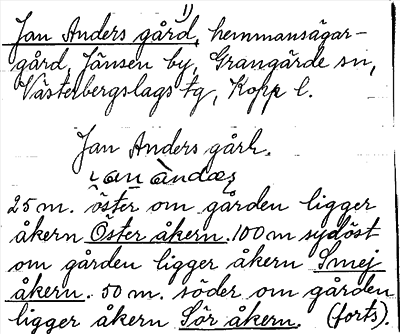 1)
Jan Anders gård, hemmansägar-
gård, Jänsen by, Grangärde sn,
Västerbergslags tg, Kopp l.
Jan Anders gårh.
25 m. öster om gården ligger
åkern Öster åkern. 100 m sydöst
om gården ligger åkern Smej
åkern. 50 m. söder om gården
ligger åkern Sör åkern. (forts).